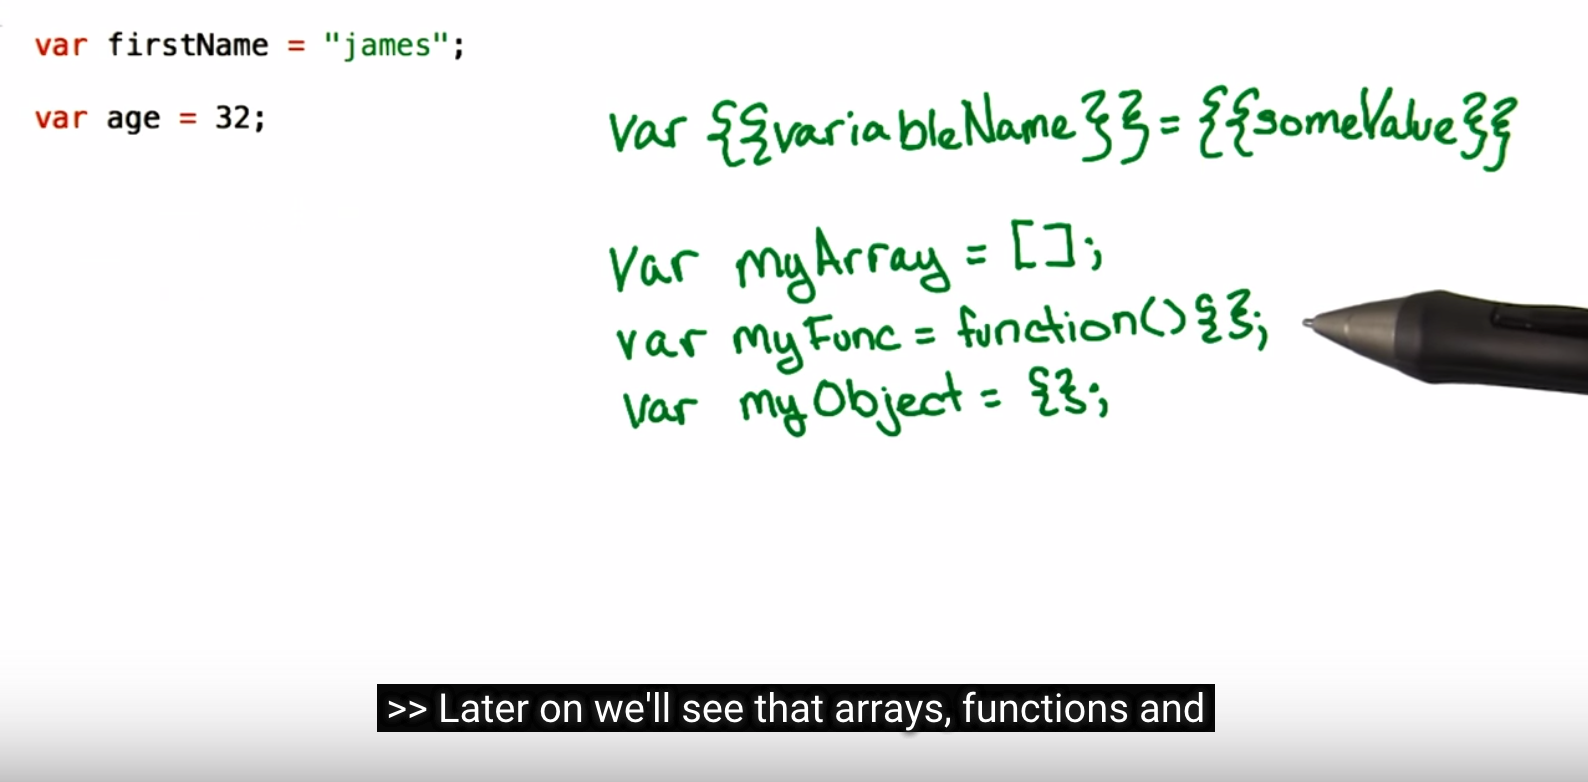 var firstName = "james";
var age = 32;
var {{variableName}} = {{someValue}}
var myArray = [];
var myFunc = function(){};
var myObject = {};
>> Later on we'll see that arrays, functions and